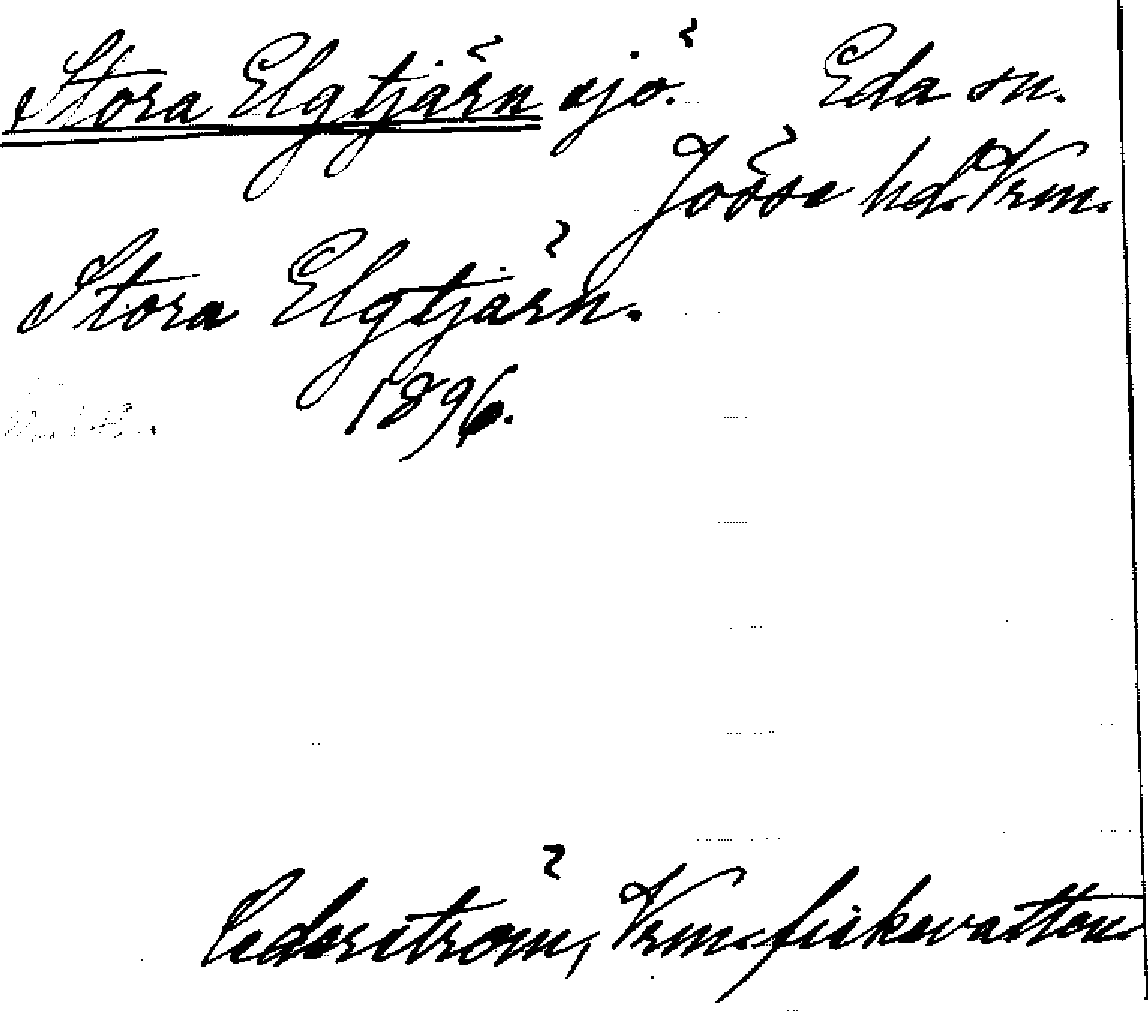 Stora Elgtjärn sjö. Eda sn.
Jösse hd. Vrm.
Stora Elgtjärn.
1896.
Cederström, Vrm. fiskevatten